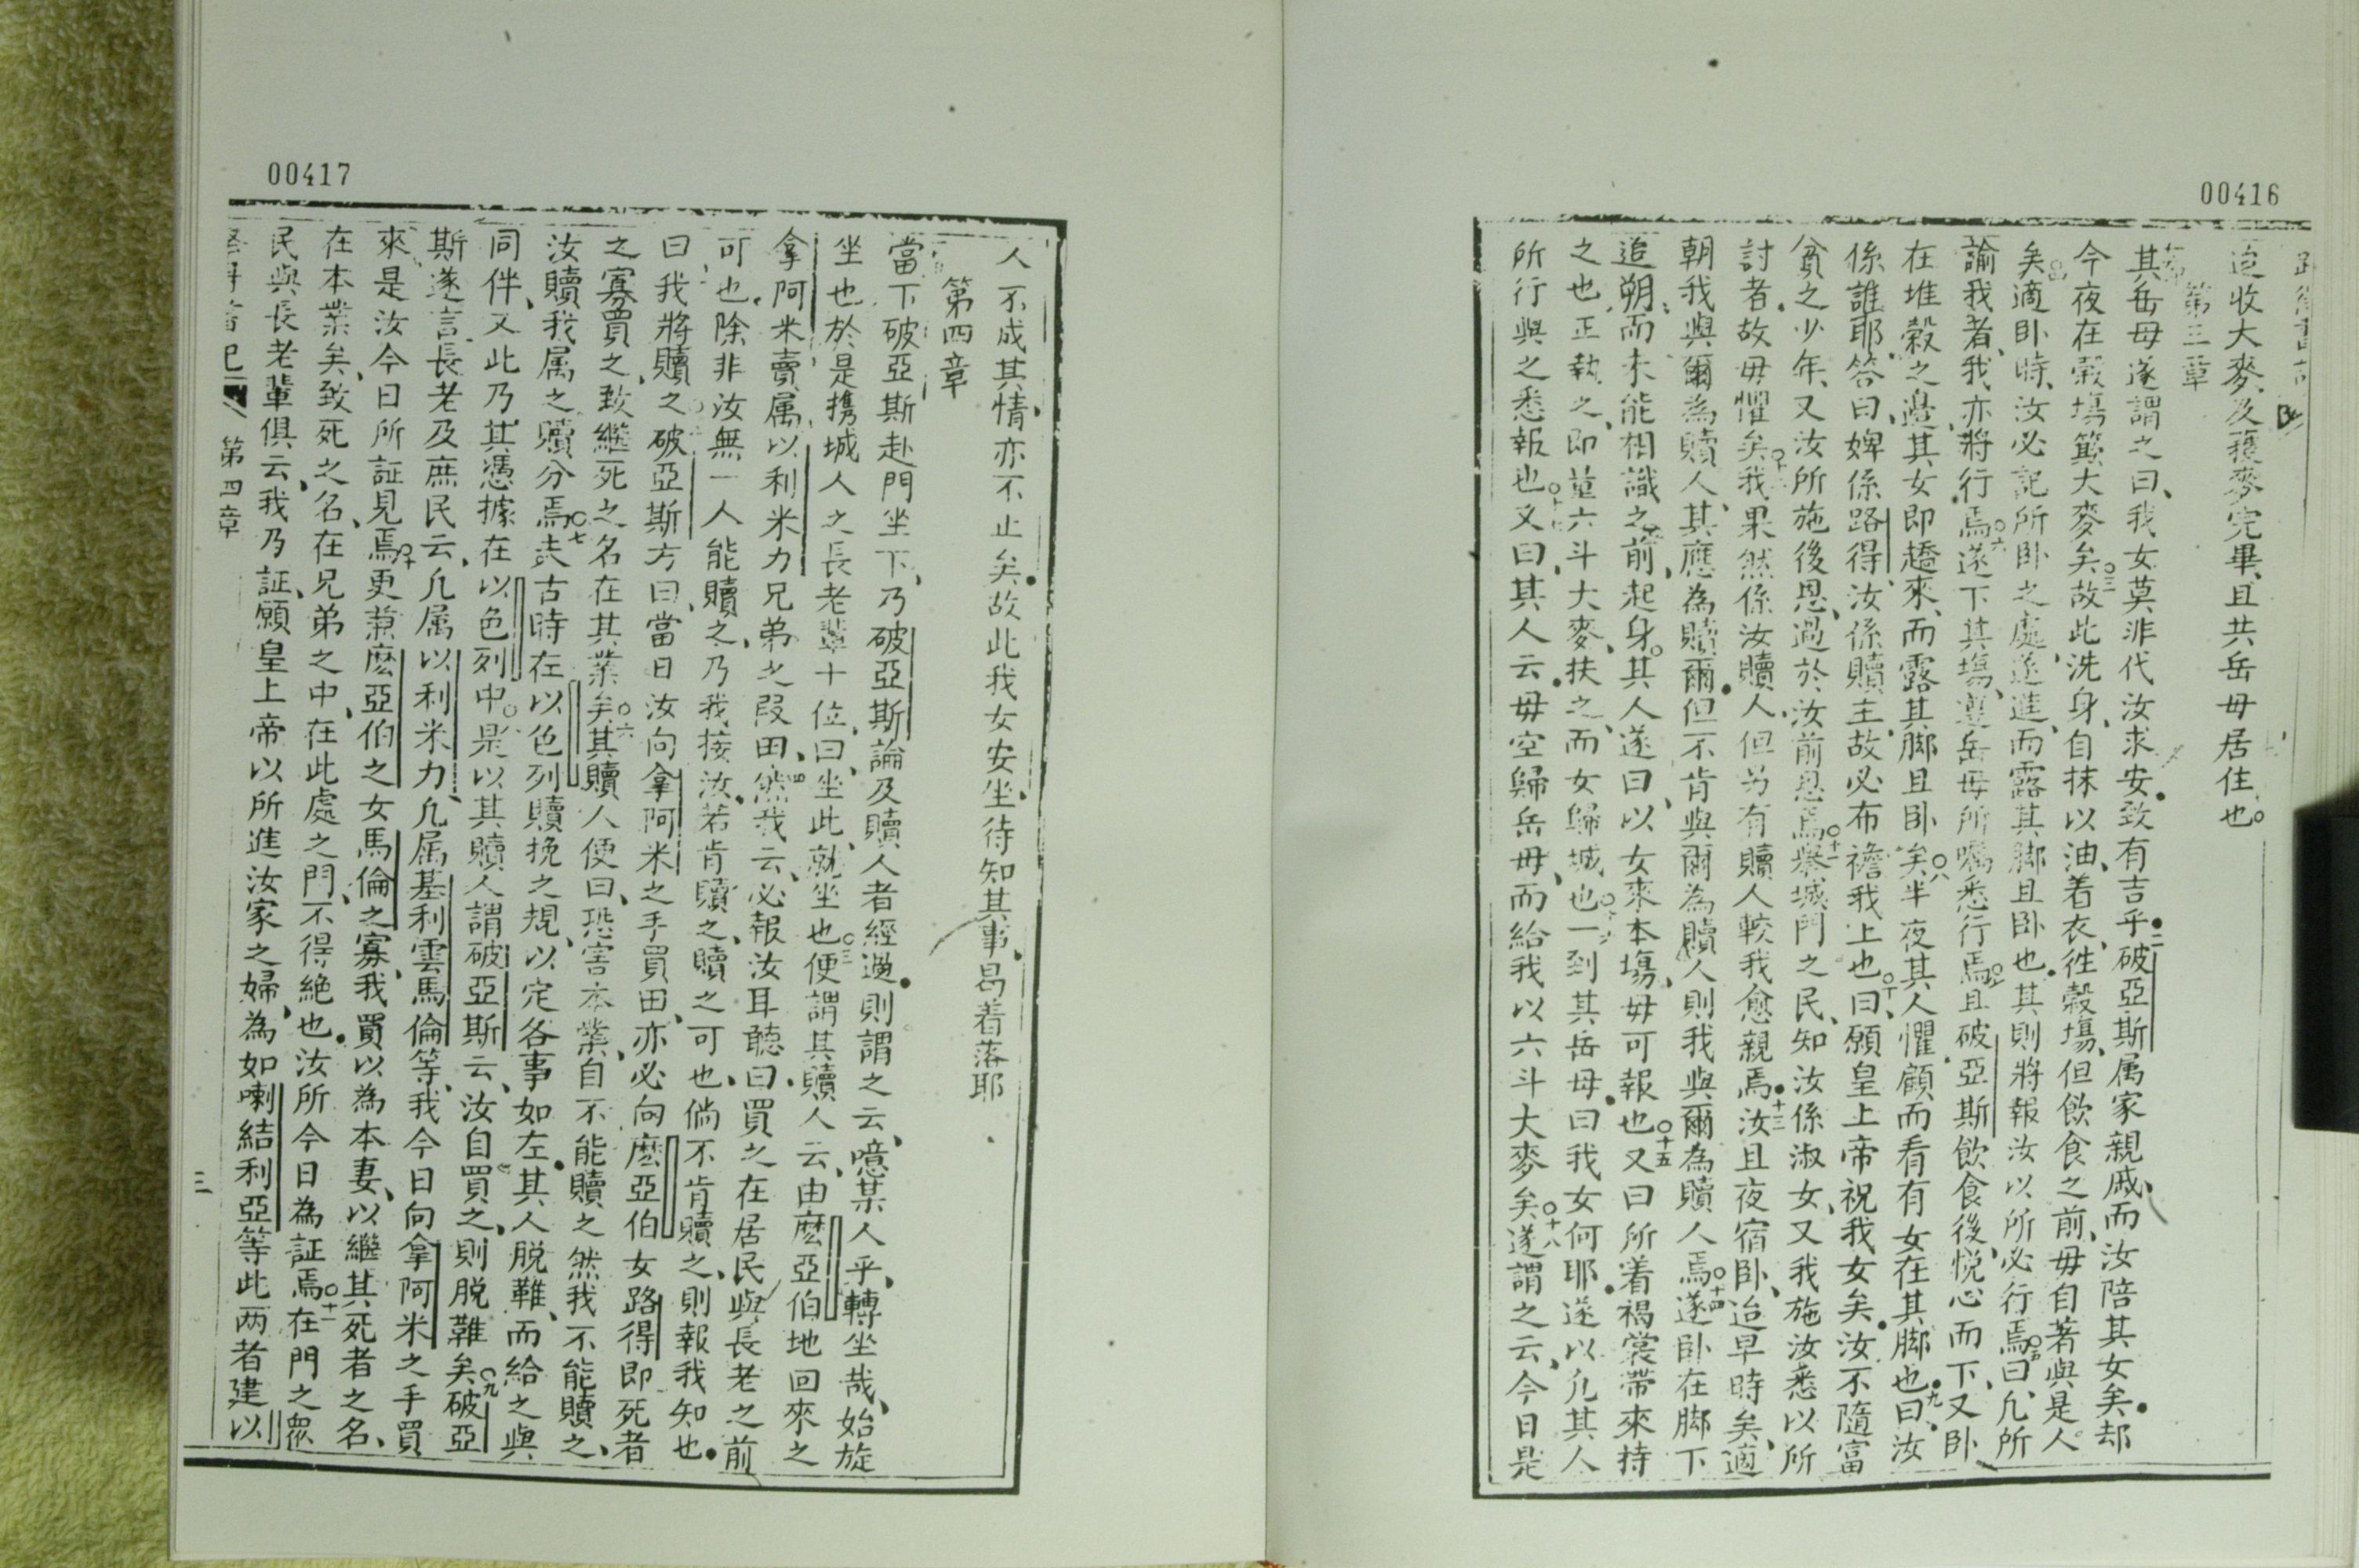 00416
迨收大麥及穫麥完畢、且共岳母居住也。
第三章
其岳母遂謂之曰、我女莫非代汝求安、致有吉乎。二破亞斯属家親戚、而汝陪其女矣。却
今夜在穀塲簸大麥矣。三故此洗身、自抹以油、着衣、徃穀塲、但飲食之前、毋自著與是人
矣。四適卧時、汝必記所卧之處、遂進、而露其脚且卧也。其則將報汝以所必行焉。五曰、凢所
諭我者、我亦將行焉。六遂下其塲、遵岳母所嘱悉行焉。七且破亞斯飲食後、悦心而下、又卧
在堆穀之邉、其女即趫來、而露其脚且卧矣。八半夜其人懼、顧而看有女在其脚也。九曰、汝
係誰耶、答曰、婢係路得、汝係贖主、故必布襜我上也。十曰、願皇上帝祝我女矣。汝不隨富
貧之少年、又汝所施後恩、過於汝前恩焉。十一舉城門之民、知汝係淑女、又我施汝悉以所
討者、故毋懼矣。十二我果然係汝贖人、但另有贖人較我愈親焉。十三汝且夜宿卧、迨早時矣、適
朝我與爾為贖人、其應為贖爾。但不肯與爾為贖人則我與爾為贖人焉。十四遂卧在脚下
迨朔、而未能相識之前、起身。其人遂曰、以女來本塲、毋可報也。十五又曰所着褐裳帶來持
之也、正執之、即量六斗大麥、扶之、而女歸城也。十六一到其岳母。曰我女何耶。遂以凢其人
所行與之悉報也。十七又曰、其人云。毋空歸岳母、而給我以六斗大麥矣。十八遂謂之云、今日是
00417
人不成其情、亦不止矣。故此我女安坐、待知其事、曷着落耶、
第四章
當下破亞斯赴門坐下、乃破亞斯論及贖人者經過。則謂之云、噫某人乎、轉坐哉、始旋
坐也於是携城人之長老輩十位、曰、坐此、就坐也。三便謂其贖人云、由麽亞伯地回來之
拿阿米賣属以利米力兄弟之叚田、四然我云、必報汝耳聽、曰、買之在居民與長老之前
可也、除非汝無一人能贖之、乃我接汝、若肯贖之、贖之可也、倘不肯贖之、則報我知也。
曰我將贖之。破亞斯方曰、當日汝向拿阿米之手買田、亦必向麽亞伯女路得即死者
之寡買之、致繼死之名在其業矣。六其贖人便曰、恐害本業、自不能贖之然我不能贖之、
汝贖我属之贖分焉。七夫古時在以色列贖挽之規、以定各事如左。其人脱鞋、而給之與
同伴、又此乃其憑據在以色列中。是以其贖人謂破亞斯云、汝自買之、則脱鞋矣。九破亞
斯遂言長老及庶民云、凢属以利米力、凢属基利雲馬倫等、我今日向拿阿米之手買
來、是汝今日所証見焉。十更兼麽亞伯之女馬倫之寡、我買以為本妻、以繼其死者之名、
在本業矣、致死之名、在兄弟之中、在此處之門、不得絶也。汝所今日為証焉。十一在門之衆
民與長老輩俱云、我乃証、願皇上帝以所進汝家之婦、為如喇結利亞等此两者建以
第四章
三